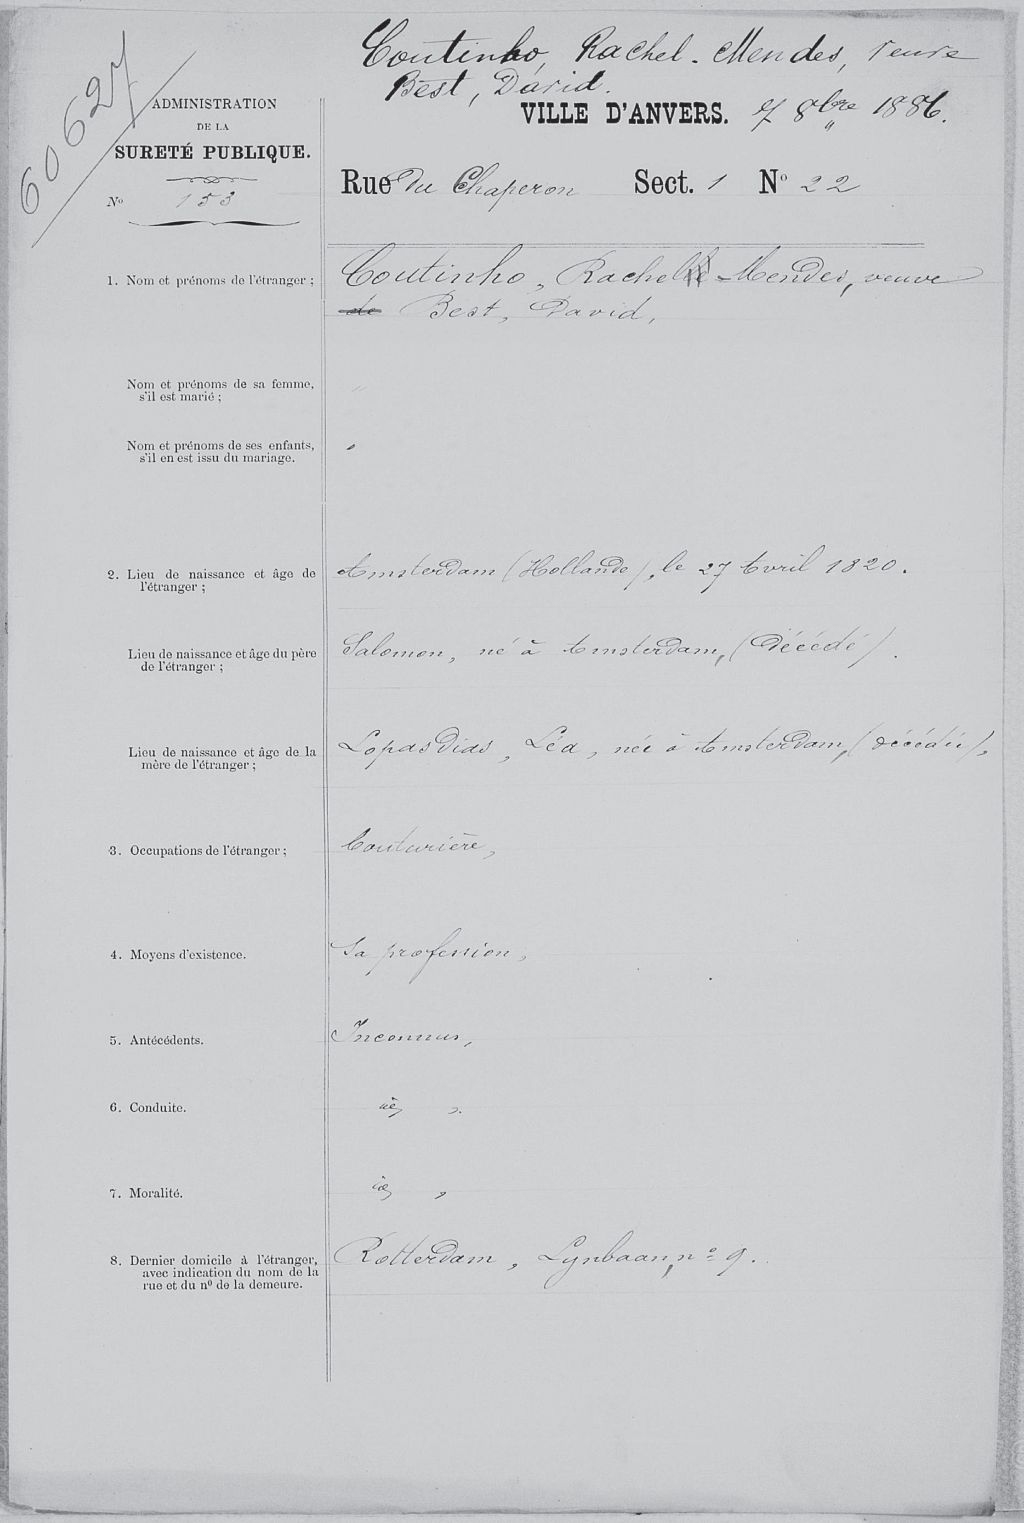 Coutinho, Rachel - Mendes, veuve
Best, David.
60627
ADMINISTRATION
DE LA
SURETÉ PUBLIQUE.
No 153
VILLE D'ANVERS. 8bre 1886.
Rue du Chaperon Sect. 1 No 22
1. Nom et prénoms de l'étranger ;
Coutinho, Rachel - Mendes, veuve
de Best, David,
Nom et prénoms de sa femme,
s'il est marié ;
"
Nom et prénoms de ses enfants,
s'il en est issu du mariage.
2. Lieu de naissance et âge de
l'étranger ;
Amsterdam (Hollande), le 27 Avril 1820.
Lieu de naissance et âge du père
de l'étranger ;
Salomon, né à Amsterdam, (Décédé).
Lieu de naissance et âge de la
mère de l'étranger ;
Lopas Dias, Léa, née à Amsterdam, (décédée),
3. Occupations de l'étranger ;
Couturière,
4. Moyens d'existence.
Sa profession,
5. Antécédents.
Inconnus,
6. Conduite.
7. Moralité.
8. Dernier domicile à l'étranger,
avec indication du nom de la
rue et du no de la demeure.
Rotterdam, Lynbaan, no 9.